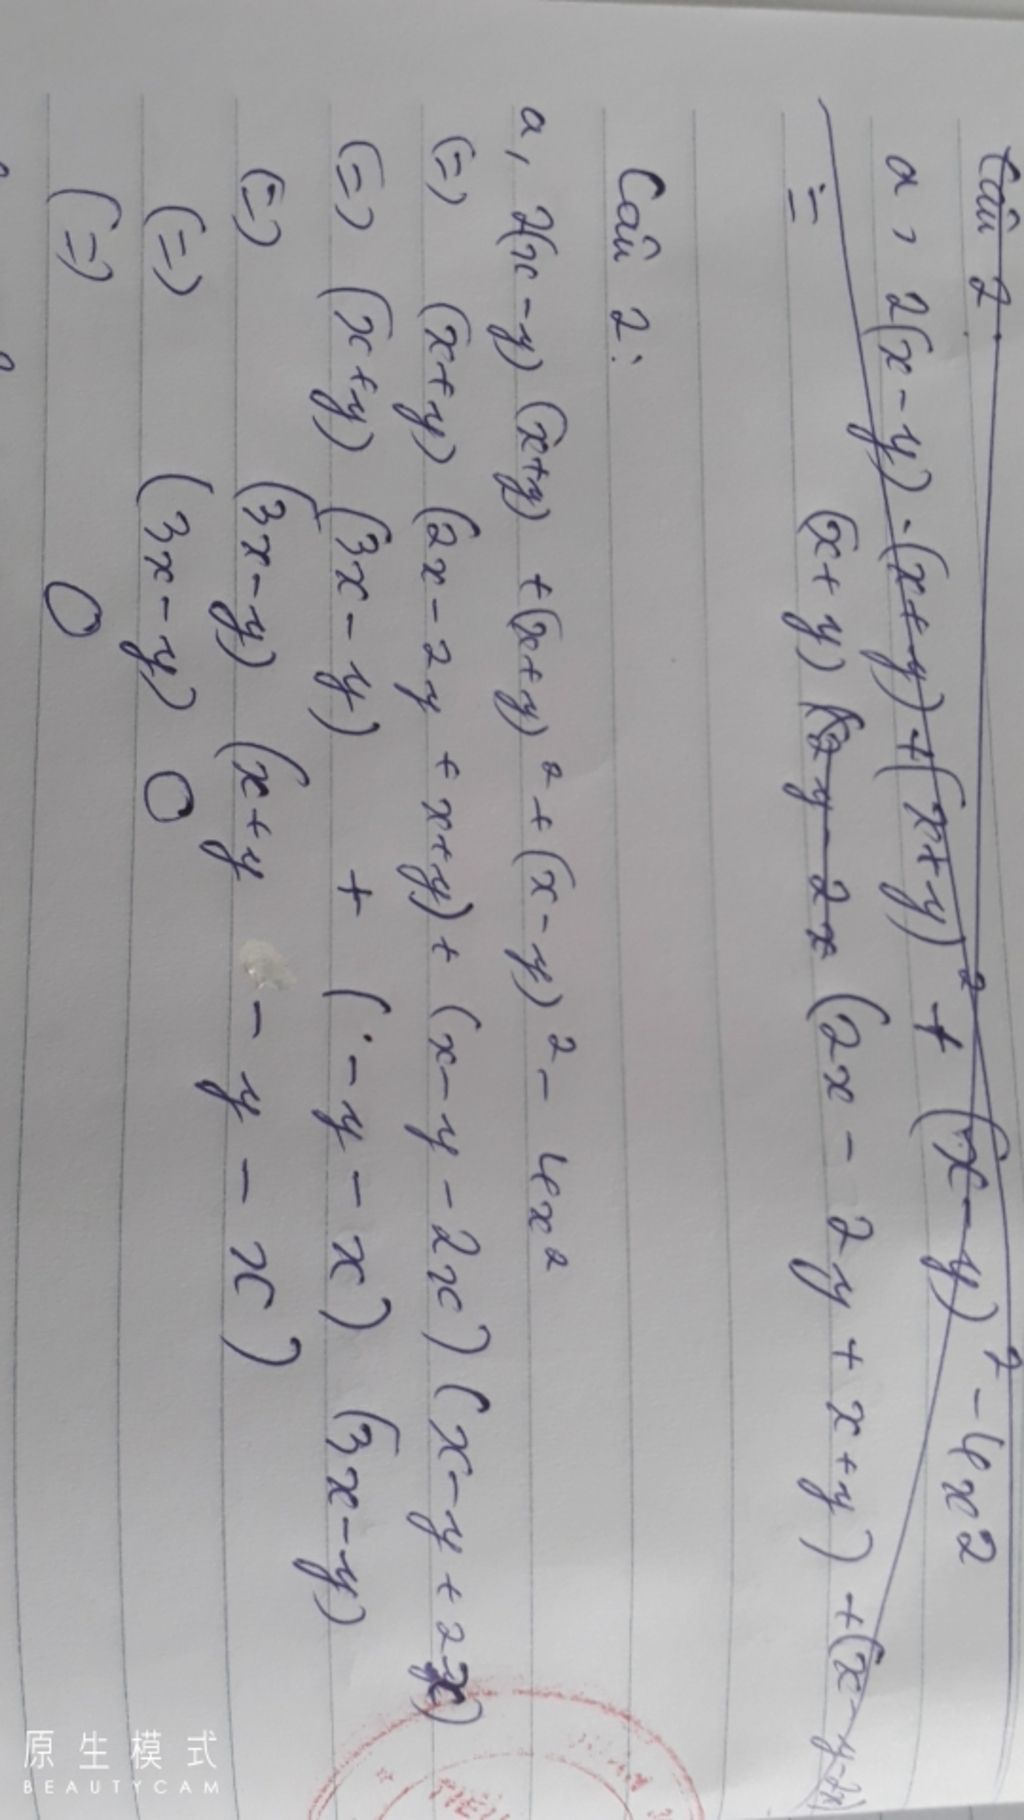 Câu 2:
a, 2(x-y).(x+y)+(x+y)² + (x-y)² - 4x²
= (x+y) (2y-2x (2x - 2y + x+y) + (x-y-2x)
Câu 2:
a, 2(x-y) (x+y) + (x+y)² + (x-y)² - 4x²
(=) (x+y) (2x-2y + x+y) + (x-y-2x) (x-y+2x)
(=) (x+y) (3x-y) + (-y-x) (3x-y)
(=) (3x-y) (x+y - y - x)
(=) (3x-y) 0
(=) 0
原生模式
BEAUTYCAM